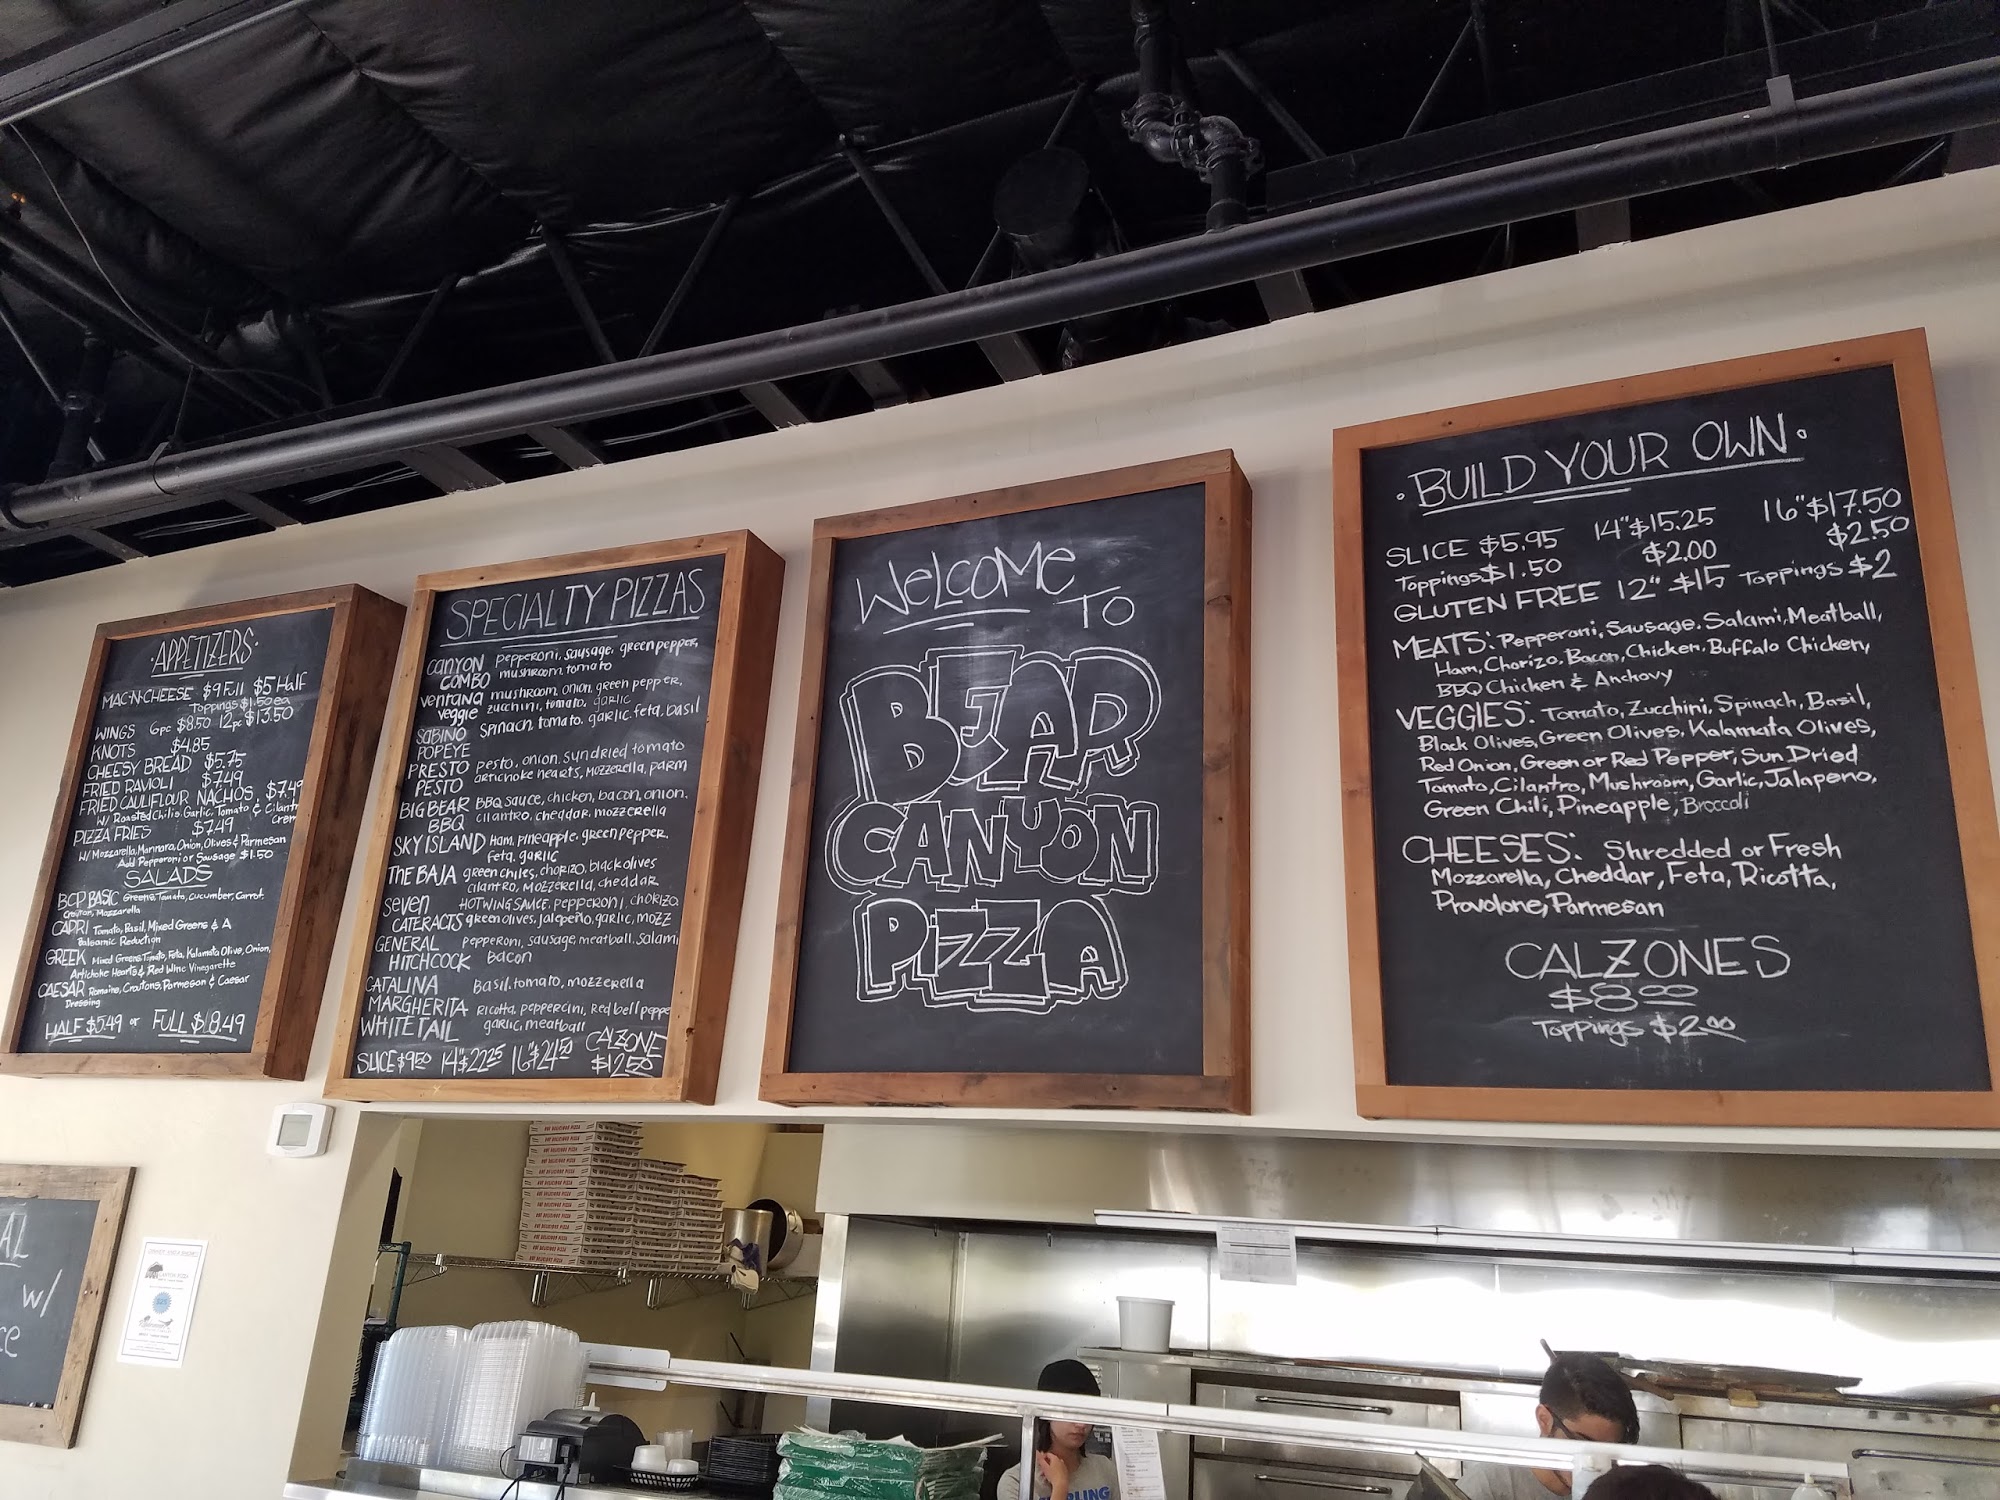 ·APPETIZERS·
MAC-N-CHEESE $9 Full $5 Half
Toppings $1.50 ea
WINGS 6pc $8.50 12pc $13.50
KNOTS $4.85
CHEESY BREAD $5.75
FRIED RAVIOLI $7.49
FRIED CAULIFLOUR NACHOS $7.49
W/ Roasted Chilis, Garlic, Tomato & Cilantro
Crem
PIZZA FRIES $7.49
W/ Mozzarella, Marinara, Onion, Olives & Parmesan
Add Pepperoni or Sausage $1.50
SALADS
BCP BASIC Greens, Tomato, Cucumber, Carrot
Crouton, Mozzarella
CAPRI Tomato, Basil, Mixed Greens & A
Balsamic Reduction
GREEK Mixed Greens, Tomato, Feta, Kalamata Olive, Onion,
Artichoke Hearts & Red Wine Vinegarette
CAESAR Romaine, Croutons, Parmesan & Caesar
Dressing
HALF $5.49 or FULL $18.49
SPECIALTY PIZZAS
CANYON COMBO pepperoni, sausage, green pepper,
mushroom, tomato
ventana veggie mushroom, onion, green pepper,
zucchini, tomato, garlic
SABINO POPEYE spinach, tomato, garlic, feta, basil
PRESTO PESTO pesto, onion, sundried tomato
artichoke hearts, mozzerella, parm
BIG BEAR BBQ BBQ sauce, chicken, bacon, onion,
cilantro, cheddar, mozzerella
SKY ISLAND Ham, pineapple, green pepper,
feta, garlic
THE BAJA green chiles, chorizo, black olives
cilantro, mozzerella, cheddar
Seven CATERACTS HOT WING SAUCE, pepperoni, chorizo
green olives, jalepeño, garlic, mozz
GENERAL HITCHCOCK pepperoni, sausage, meatball, salami
bacon
CATALINA MARGHERITA Basil, tomato, mozzerella
WHITETAIL Ricotta, peppercini, Red bell peppe
garlic, meatball
SLICE $9.50 14" $22.25 16" $24.50 CALZONE
$12.50
WELCOME
TO
BEAR
CANYON
PIZZA
·BUILD YOUR OWN·
SLICE $5.95 14" $15.25 16" $17.50
Toppings $1.50 $2.00 $2.50
GLUTEN FREE 12" $15 Toppings $2
MEATS: Pepperoni, Sausage, Salami, Meatball,
Ham, Chorizo, Bacon, Chicken, Buffalo Chicken,
BBQ Chicken & Anchovy
VEGGIES: Tomato, Zucchini, Spinach, Basil,
Black Olives, Green Olives, Kalamata Olives,
Red Onion, Green or Red Pepper, Sun Dried
Tomato, Cilantro, Mushroom, Garlic, Jalapeno,
Green Chili, Pineapple, Broccoli
CHEESES: Shredded or Fresh
Mozzarella, Cheddar, Feta, Ricotta,
Provolone, Parmesan
CALZONES
$8.00
Toppings $2.00
AL
w/
ce
CANYON PIZZA
HOT DELICIOUS PIZZA